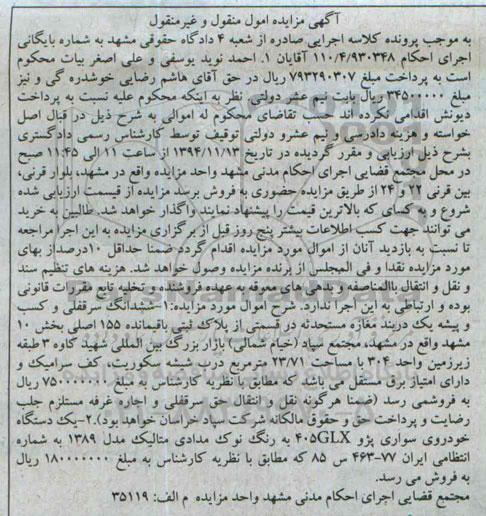 آگهی مزایده اموال منقول و غیرمنقول
به موجب پرونده کلاسه اجرایی صادره از شعبه ۴ دادگاه حقوقی مشهد به شماره بایگانی
اجرای احکام ۱۱۰/۴/۹۳۰۳۴۸ آقایان ۱. احمد نوید یوسفی و علی اصغر بیات محکوم
است به پرداخت مبلغ ۷۹۳۲۹۰۳۰۷ ریال در حق آقای هاشم رضایی خوشدره گی و نیز
مبلغ ۳۴۵۰۰۰۰۰ ریال بابت نیم عشر دولتی نظر به اینکه محکوم علیه نسبت به پرداخت
دیونش اقدامی نکرده اند حسب تقاضای محکوم له اموالی به شرح ذیل در قبال اصل
خواسته و هزینه دادرسی و نیم عشرو دولتی توقیف توسط کارشناس رسمی دادگستری
بشرح ذیل ارزیابی و مقرر گردیده در تاریخ ۱۳۹۴/۱۱/۱۳ از ساعت ۱۱ الی ۱۱:۴۵ صبح
در محل مجتمع قضایی اجرای احکام مدنی مشهد واحد مزایده واقع در مشهد، بلوار قرنی،
بین قرنی ۲۲ و ۲۴ از طریق مزایده حضوری به فروش برسد مزایده از قیسمت ارزیابی شده
شروع و به کسای که بالاترین قیمت را پیشنهاد نمایند واگذار خواهد شد. طالبین به خرید
می توانند جهت کسب اطلاعات بیشتر پنج روز قبل از برگزاری مزایده به این اجرا مراجعه
تا نسبت به بازدید آنان از اموال مورد مزایده اقدام گردد ضمنا حداقل ۱۰درصداز بهای
مورد مزایده نقدا و فی المجلس از برنده مزایده وصول خواهد شد. هزینه های تنظیم سند
و نقل و انتقال بالمناصفه و بدهی های معوقه به عهده فروشنده و تخلیه تابع مقررات قانونی
بوده و ارتباطی به این اجرا ندارد. شرح اموال مورد مزایده: ۱-ششدانگ سرقفلی و کسب
و پیشه یک دربند مغازه مستحدثه در قسمتی از پلاک ثبتی باقیمانده ۱۵۵ اصلی بخش ۱۰
مشهد واقع در مشهد، مجتمع سپاد (خیام شمالی) بازار بزرگ بین المللی شهید کاوه ۳طبقه
زیرزمین واحد ۳۰۴ با مساحت ۲۳/۷۱ مترمربع درب شیشه سکوریت، کف سرامیک و
دارای امتیاز برق مستقل می باشد که مطابق با نظریه کارشناس به مبلغ ۷۵۰۰۰۰۰۰۰ ریال
به فروشمی رسد (ضمنا هرگونه نقل و انتقال حق سرقفلی و اجاره غرفه مستلزم جلب
رضایت و پرداخت حق و حقوق مالکانه شرکت سپاد خراسان خواهد بود).۲-یک دستگاه
خودروی سواری پژو ۴۰۵GLX به رنگ نوک مدادی متالیک مدل ۱۳۸۹ به شماره
انتظامی ایران ۷۷-۴۶۳ س ۸۵ که مطابق با نظریه کارشناس به مبلغ ۱۸۰۰۰۰۰۰۰ ریال
به فروش می رسد.
مجتمع قضایی اجرای احکام مدنی مشهد واحد مزایده م الف: ۳۵۱۱۹